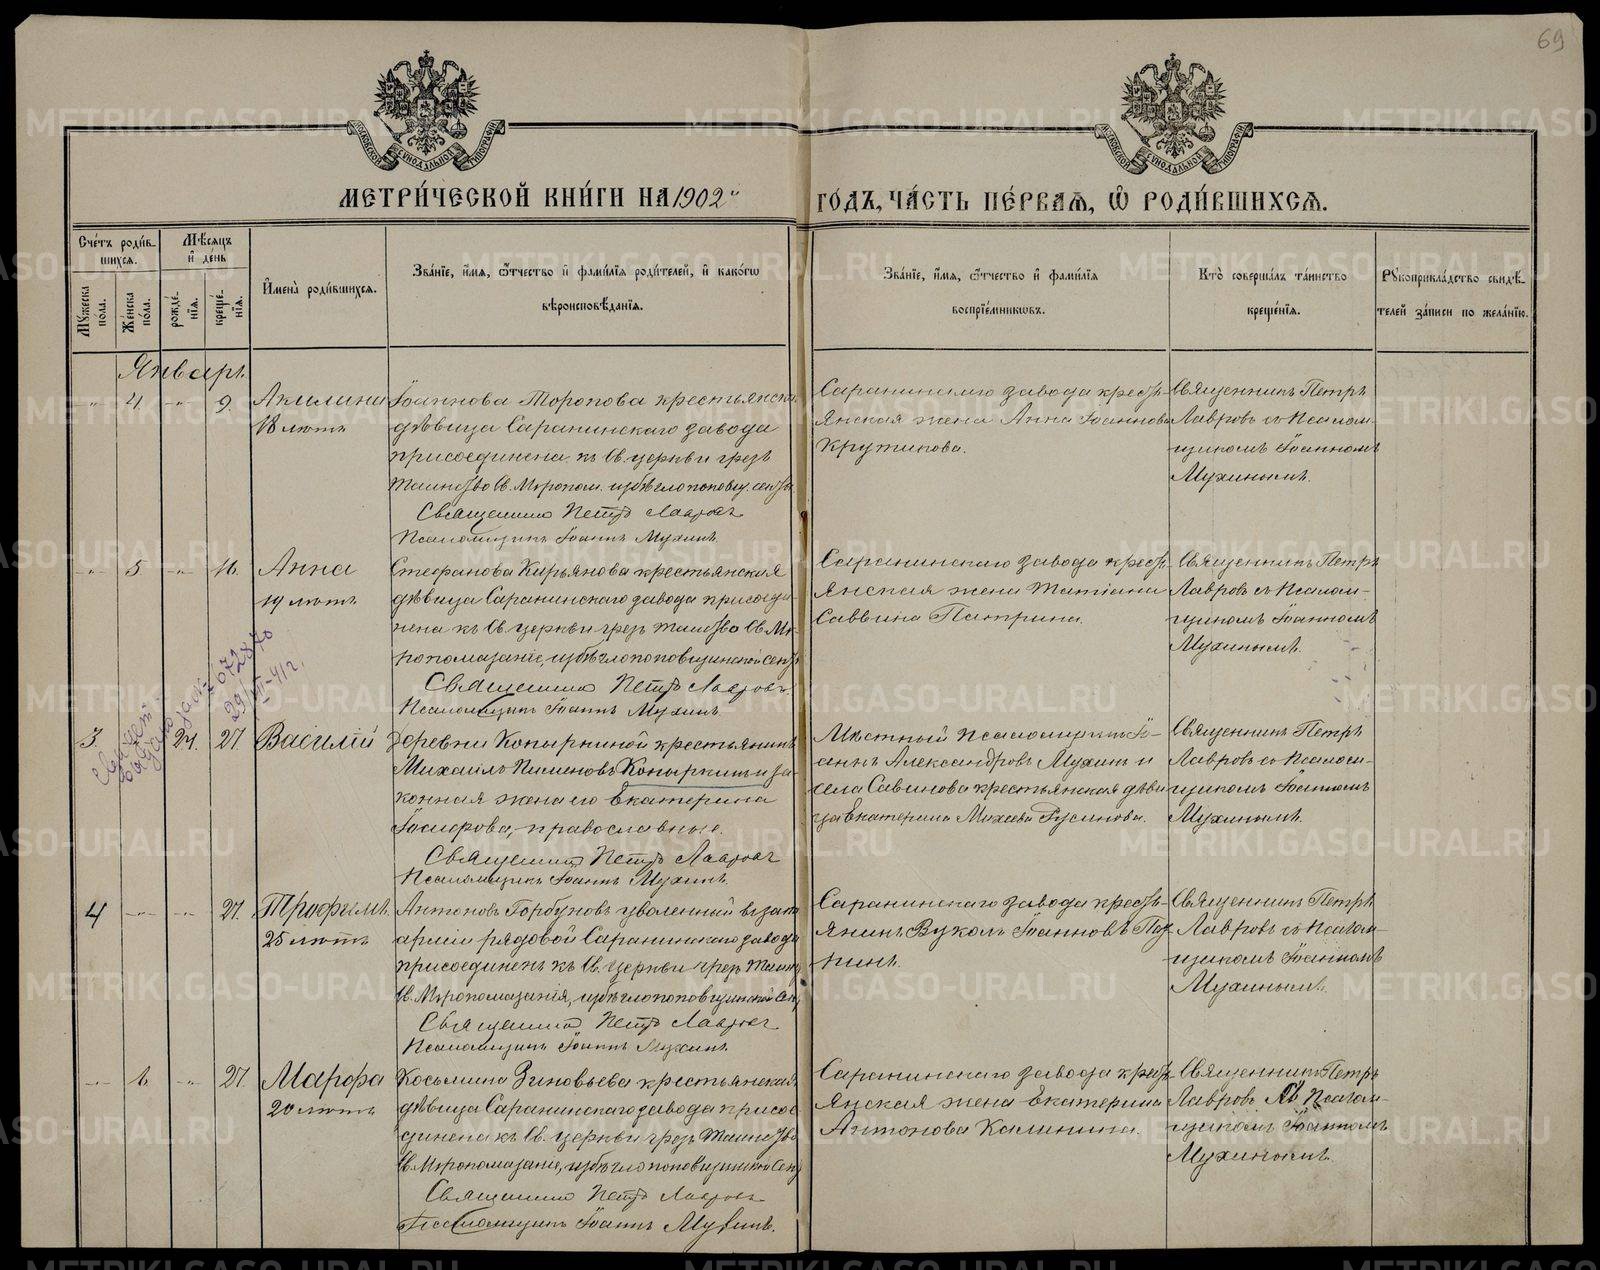 69
МОСКОВСКОЙ СѴНОДАЛЬНОЙ ТИПОГРАФІИ
МОСКОВСКОЙ СѴНОДАЛЬНОЙ ТИПОГРАФІИ
МЕТРИ́ЧЕСКОЙ КНИ́ГИ НА 1902 й ГО́ДЪ, ЧА́СТЬ ПЕ́РВАѦ, Ѡ҆ РОДИ́ВШИХСѦ.
Сче́тъ роди́в-
шихсѧ.
Мѣ́сѧцъ
и҆ де́нь
Мꙋ́жеска
по́ла.
Же́нска
по́ла.
рожде́-
нїѧ.
креще́-
нїѧ.
И҆мена̀ роди́вшихсѧ.
Зва́нїе, и҆́мѧ, ѻ҆́тчество и҆ фами́лїѧ роди́телей, и҆ како́гѡ
вѣроисповѣ́данїѧ.
Зва́нїе, и҆́мѧ, ѻ҆́тчество и҆ фами́лїѧ
воспрїе́мникѡвъ.
Кто̀ соверша́лъ та́инство
креще́нїѧ.
Рꙋкоприкла́дство свидѣ́-
телей за́писи по жела́нїю.
Январь.
-"- 4. -"- 9. Акилина
18 лѣтъ
Іоаннова Торопова крестьянска
дѣвица Саранинскаго завода
присоединена къ Св. церкви чрезъ
таинство Св. Мѵропом. изъ бѣглопоповщ. секты
Священникъ Петръ Лавровъ
Псаломщикъ Іоаннъ Мухинъ.
Саранинскаго завода кресть-
янская жена Анна Іоаннова
Крутикова.
Священникъ Петръ
Лавровъ съ Псалом-
щикомъ Іоанномъ
Мухинымъ.
-"- 5. -"- 16. Анна
19 лѣтъ
Стефанова Кирьянова крестьянская
дѣвица Саранинскаго завода присоеди-
нена къ Св. церкви чрезъ таинство Св. Мѵ-
ропомазаніе, изъ бѣглопоповщинской секты
Священникъ Петръ Лавровъ
Псаломщикъ Іоаннъ Мухинъ.
Саранинскаго завода кресть-
янская жена Татіана
Саввина Патрина.
Священникъ Петръ
Лавровъ съ Псалом-
щикомъ Іоанномъ
Мухинымъ.
3. 24. 27. Василій
деревни Копыркиной крестьянинъ
Михаилъ Пименовъ Копыркинъ и за-
конная жена его Екатерина
православные.
Священникъ Петръ Лавровъ
Псаломщикъ Іоаннъ Мухинъ.
Мѣстный Псаломщикъ Іо-
аннъ Александровъ Мухинъ и
села Савинова крестьянская дѣви-
ца Екатерина Михеева Русинова.
Священникъ Петръ
Лавровъ съ Псалом-
щикомъ Іоанномъ
Мухинымъ.
4 -"- -"- 27. Трофимъ
25 лѣтъ
Антоновъ Горбуновъ уволенный въ запас
арміи рядовой Саранинскаго завода
присоединенъ къ Св. церкви чрезъ таинс
Св. Мѵропомазанія, изъ бѣглопоповщинской сек
Священникъ Петръ Лавровъ
Псаломщикъ Іоаннъ Мухинъ.
Саранинскаго завода кресть-
янинъ Вуколъ Іоанновъ
Священникъ Петръ
Лавровъ съ Псалом-
щикомъ Іоанномъ
Мухинымъ.
-"- 6. -"- 27. Марфа
20 лѣтъ
Косьмина Зиновьева крестьянская
дѣвица Саранинскаго завода присое-
динена къ Св. церкви чрезъ таинство
Св. Мѵропомазаніе, изъ бѣглопоповщинской сек
Священникъ Петръ Лавровъ
Псаломщикъ Іоаннъ Мухинъ.
Саранинскаго завода кресть-
янская жена Екатерина
Антонова Калинина.
Священникъ Петръ
Лавровъ съ Псалом-
щикомъ Іоанномъ
Мухинымъ.
METRIKI.GASO-URAL.RU